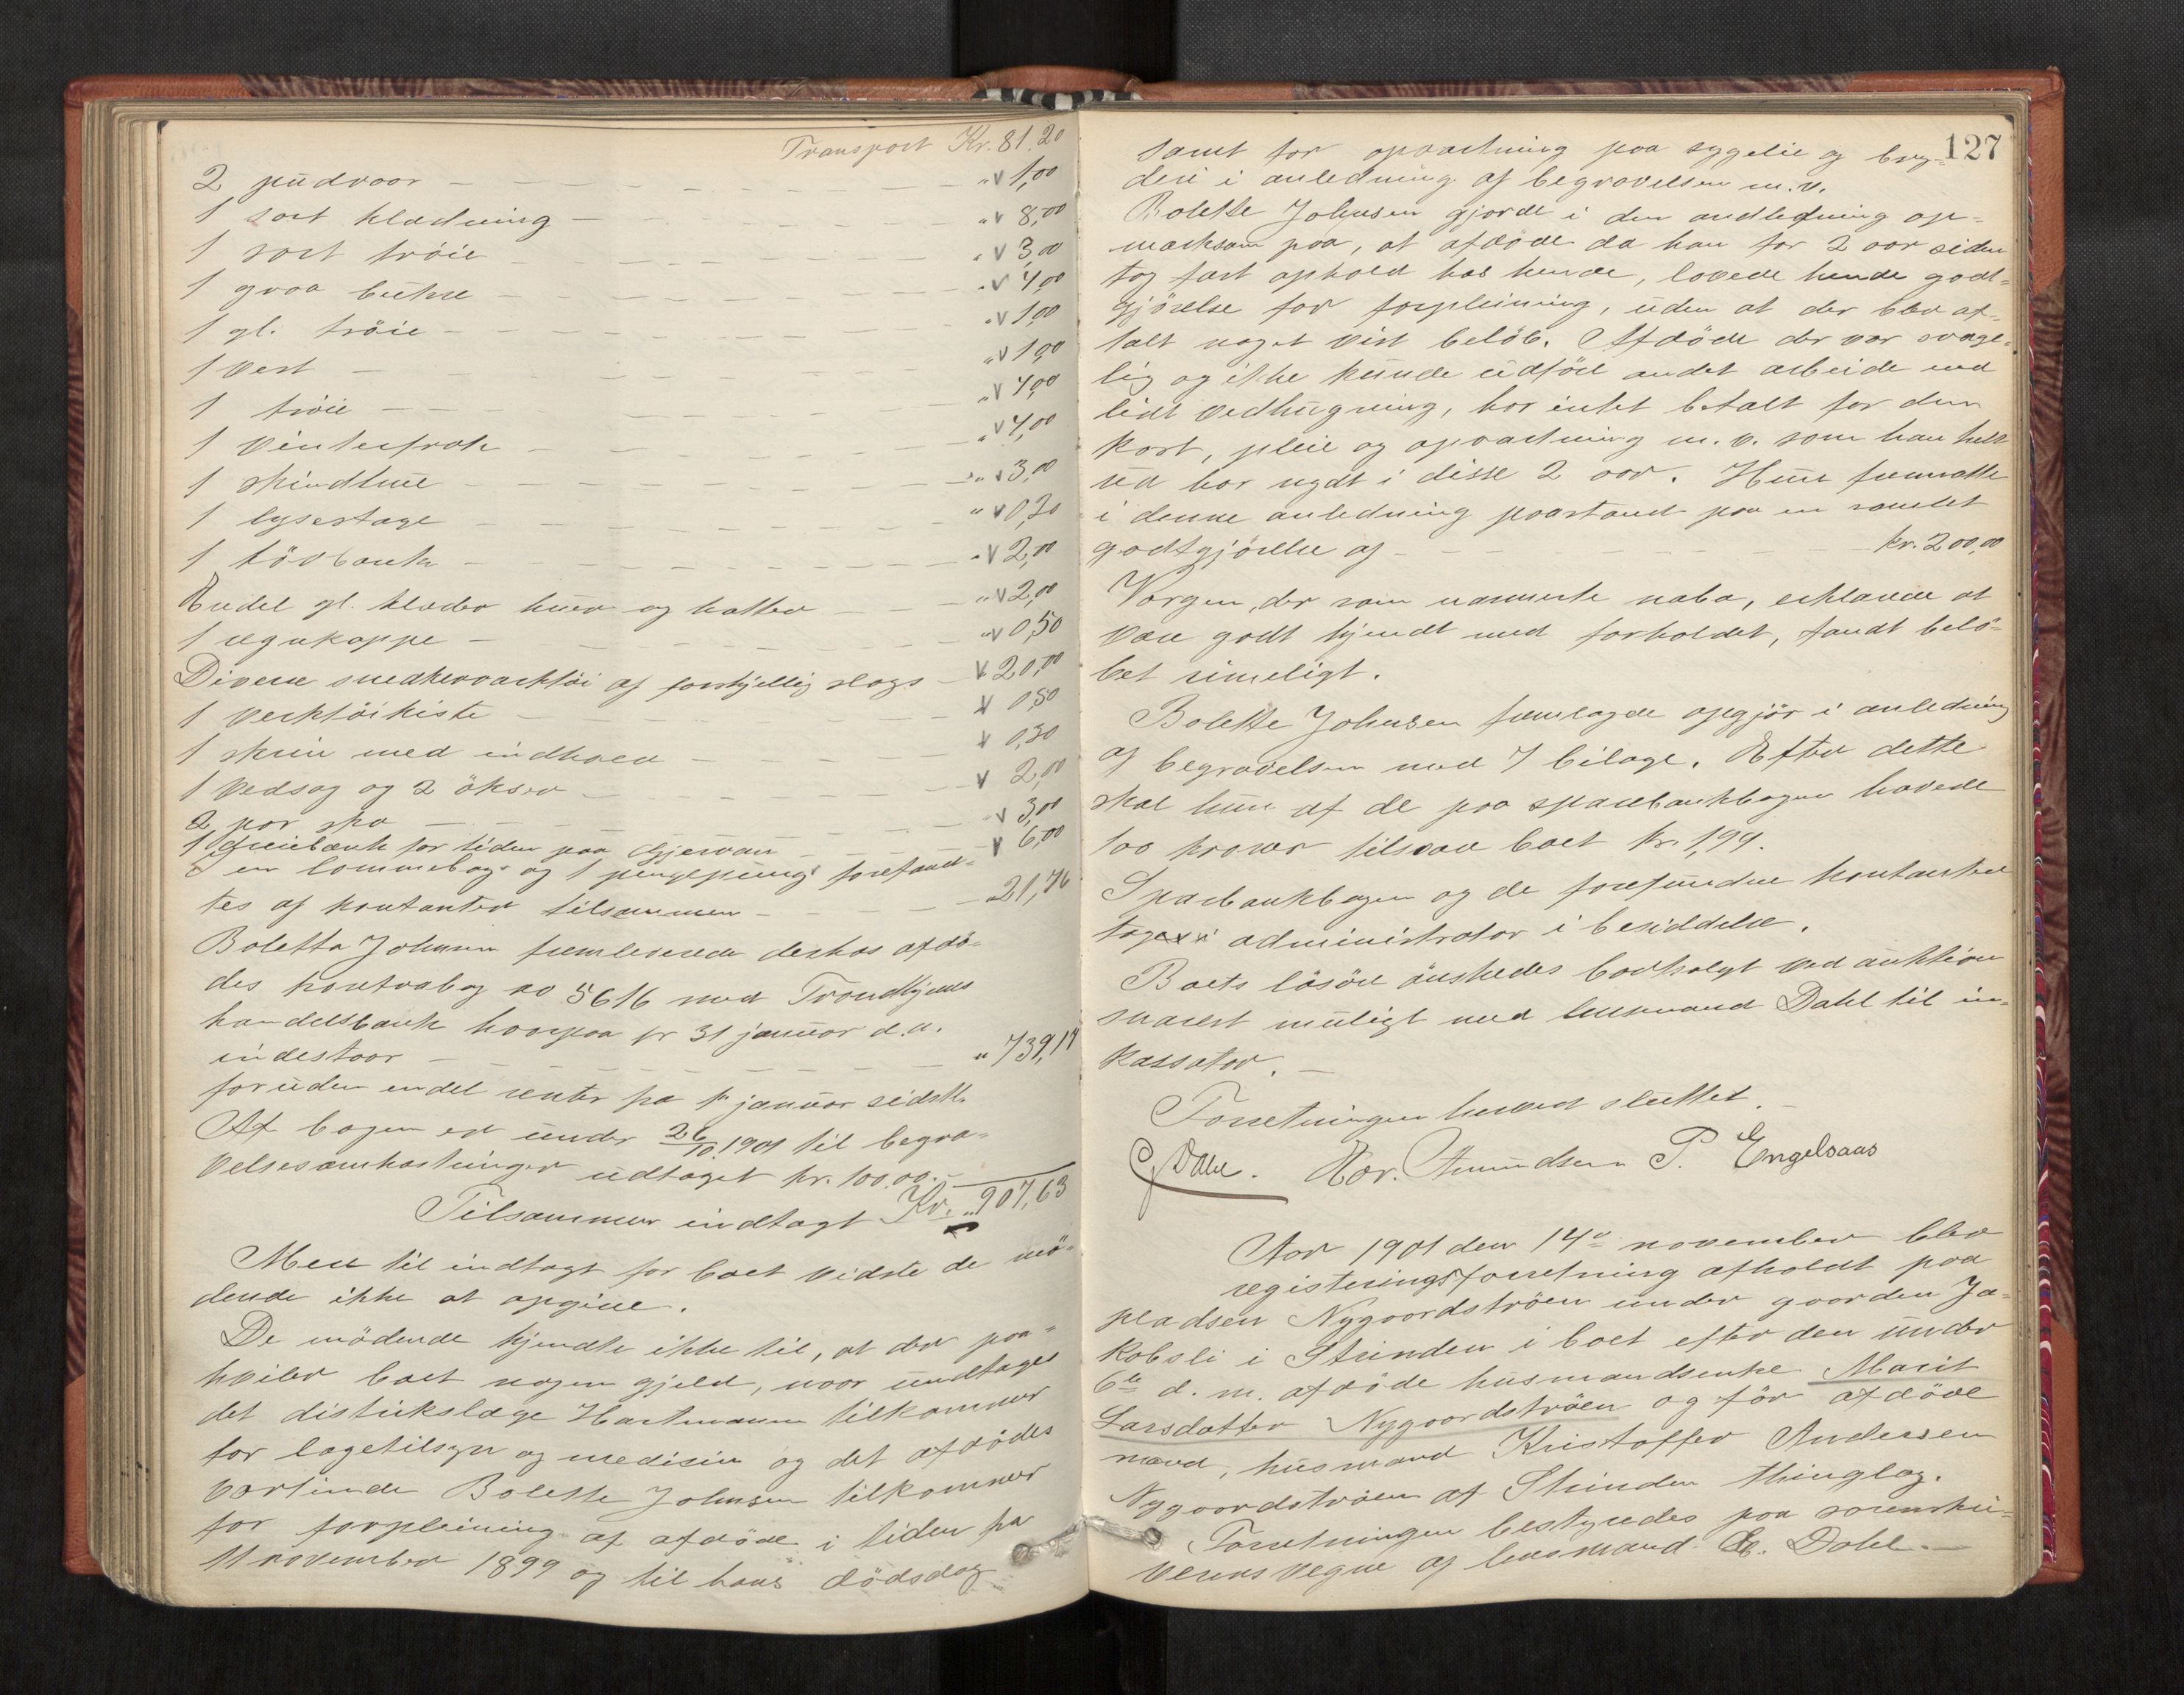 Transport Kr. 81.20
2 pudvaar - - - - " v 1,00
1 sort klædning - - - - " v 8,00
1 sort trøie - - - - " v 3,00
1 graa bukse - - - - " v 4,00
1 gl. trøie - - - - " v 1,00
1 vest - - - - " v 1,00
1 trøie - - - - " v 4,00
1 vinterfrak - - - - " v 4,00
1 skindlue - - - - " v 3,00
1 lysestage - - - - " v 0,20
1 løvbænk - - - - " v 2,00
Endel gl. klæder huer og hatter - - " v 2,00
1 regnkappe - - - - " v 0,50
Diverse snedkerværktøi af forskjellig slags - v 20,00
1 verktøikiste - - - - v 0,50
1 skrin med indhold - - - - v 0,30
1 vedsag og 2 økser - - - - v 2,00
2 par sko - - - - v 3,00
1 dreiebænk for tiden paa Gjervan - - v 6,00
I en lommebog og 1 pengepung forefand-
tes af kontanter tilsammen - - - " 21,76
Boletta Johnsen fremleverede derhos afdø-
des kontrabog no 5616 med Trondhjems
handelsbank hvorpaa pr 31 januar d.a.
indestaar - - - - " 739,17
foruden endel renter fra 1. januar sidstl.
Af bogen er under 26/10 1901 til begra-
velsesomkostninger udtaget kr. 100,00. -
Tilsammen indtægt Kr. " 907,63
Mere til indtægt for boet vidste de mø-
dende ikke at opgive.
De mødende kjendte ikke til, at der paa-
hviler boet nogen gjeld, naar undtages
det distrikslæge Hartmann tilkommer
for lægetilsyn og medisin og det afdødes
vertinde Bolette Johnsen tilkommer
for forpleining af afdøde i tiden fra
11 november 1899 og til hans dødsdag
127
samt for opvartning paa sygeleie og bry-
deri i anledning af begravelsen m.v.
Bolette Johnsen gjorde i den andledning op-
mærksom paa, at afdøde da han for 2 aar siden
tog fast ophold hos hende, lovede hende godt-
gjørelse for forpleining, uden at der blev af-
talt noget vist beløb. Afdøde der var svage-
lig og ikke kunde udføre andet arbeide end
lidt vedhugning, har intet betalt for den
kost, pleie og opvartning m.v. som han helt
ud har nydt i disse 2 aar. Hun fremsatte
i denne anledning paastand paa en samlet
godtgjørelse af - - - - kr. 200,00
Værgen, der som nærmeste nabo, erklærede at
være godt kjendt med forholdet, fandt belø-
bet rimeligt.
Bolette Johnsen fremlagde opgjør i anledning
af begravelsen med 7 bilage. Efter dette
skal hun af de paa sparebankbogen hævede
100 kroner tilsvare boet kr. 1,99.
Sparbankbogen og de forefundne kontanter
toges i administrator i besiddelse.
Boets løsøre ønskedes bortsolgt ved auktion
snarest muligt med lensmand Dahl til in-
kassator. -
Forretningen herved sluttet. -
C Dahl. Hor. Amundsen P. Engelsaas
Aar 1901 den 14de november blev
registreringsforretning afholdt paa
pladsen Nygaardstrøen under gaarden Ja-
kobsli i Strinden i boet efter den under
6te d. m. afdøde husmandsenke Marit
Larsdatter Nygaardstrøen og før afdøde
mand, husmand Kristoffer Andersen
Nygaardstrøen af Strinden thinglag.
Forretningen bestyredes paa sorenskri-
verens vegne af lensmand C. Dahl. -